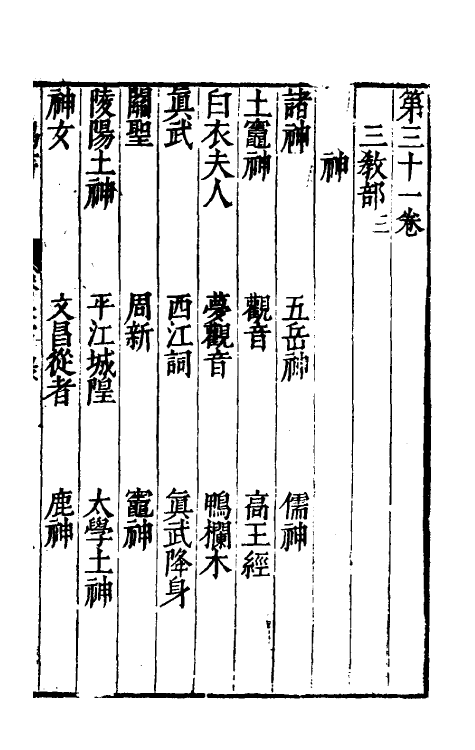 第三十一卷
三教部三
神
諸神　五岳神　儒神
土竈神　觀音　高王經
白衣夫人　夢觀音　鴨欄木
眞武　西江詞　眞武降身
關聖　周新　竈神
陵陽土神　平江城隍　太學土神
神女　文昌從者　鹿神